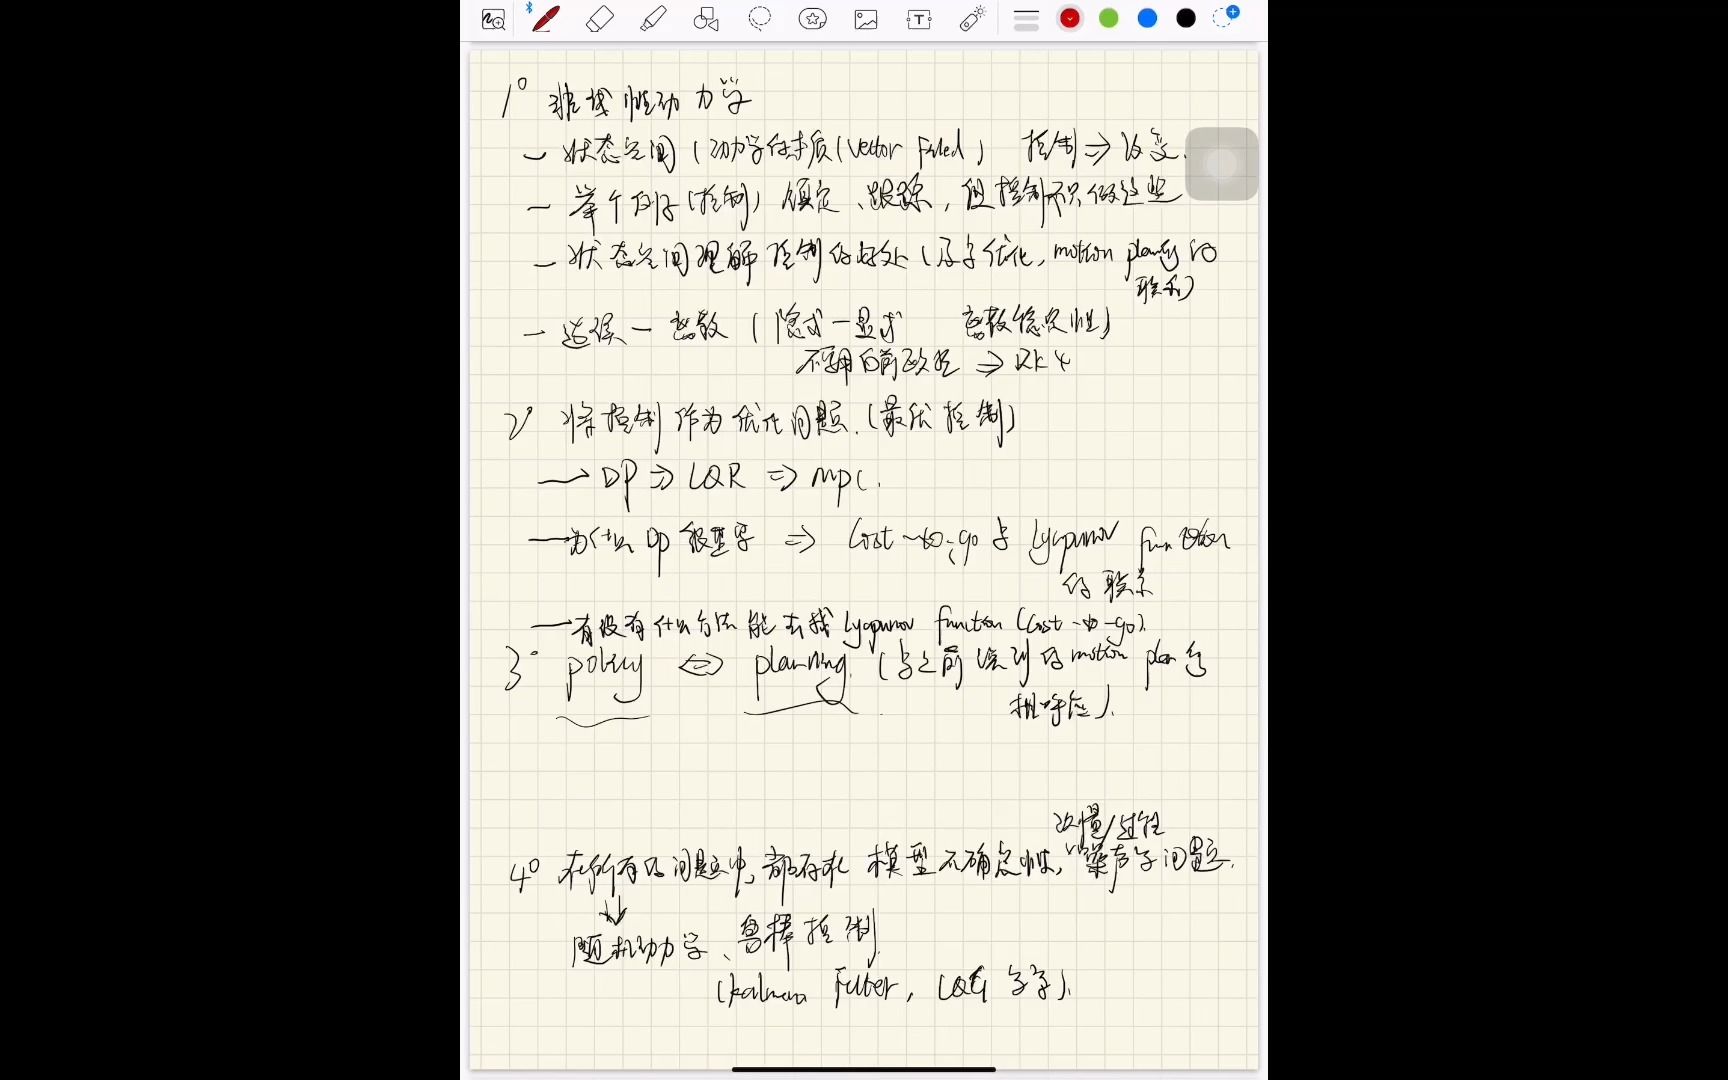 1° 非线性动力学
- 状态空间 (动力学的本质(Vector Filed) 控制⇒改变.
- 举个例子(控制) 镇定、跟踪, 但控制不只做这些
- 状态空间理解控制的好处 (与优化, motion planning 的
联系)
- 连续-离散 (隐式-显式 离散稳定性)
不要用向前欧拉 ⇒ RK4
2° 将控制作为优化问题. (最优控制)
- DP ⇒ LQR ⇒ MPC.
- 为什么 DP 很重要 ⇒ Cost-to-go 与 Lyapunov function
的联系
- 有没有什么方法能去找 Lyapunov function (Cost-to-go).
3° policy ⇔ planning. (与之前谈到的 motion plan
相呼应).
/过程
4° 在所有的问题中, 都存在 模型不确定性, 噪声等问题.
⇓
随机动力学、鲁棒控制
(Kalman Filter, LQG 等等).